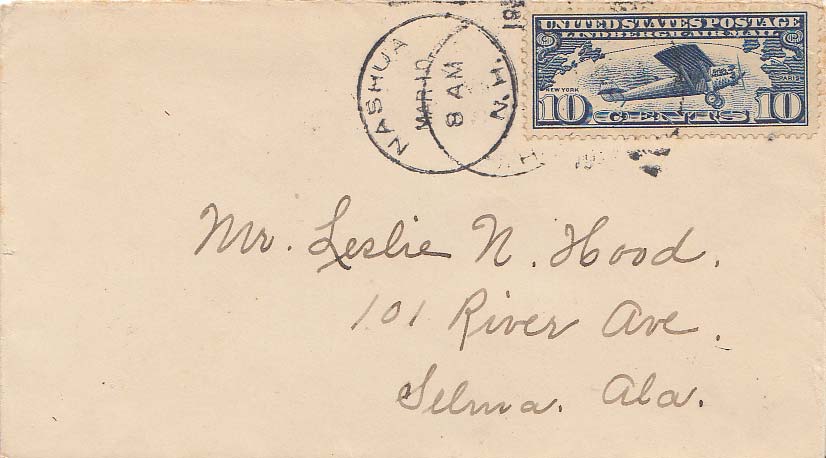 NASHUA N.H.
MAR 10
8 AM
UNITED STATES POSTAGE
LINDBERGH AIR MAIL
NEW YORK
PARIS
10 CENTS 10
Mr. Leslie N. Hood.
101 River Ave.
Selma. Ala.